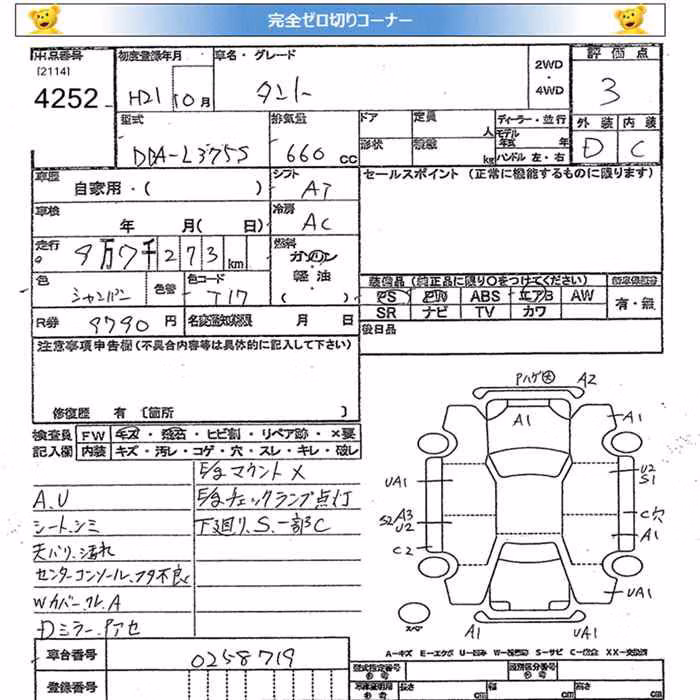 完全ゼロ切りコーナー
出品番号 初度登録年月 車名・グレード 2WD ・ 4WD 評価点
[2114]
4252 H21 10月 タント 3
型式 排気量 ドア 定員 人 ディーラー・並行 外装 内装
DBA-L375S 660 cc 形状 kg モデル 年式 年 ハンドル 左・右 D C
車歴 自家用・( ) シフト AT セールスポイント (正常に機能するものに限ります)
車検 年 月( 日) 冷房 AC
走行 9万7千273km 燃料 ガソリン・軽油 ( )
色 シャンパン 色替 色コード T17
装備品 (純正品に限り○をつけてください)
PS PW ABS エアB AW 有・無
SR ナビ TV カワ
R券 9790 円 名変通知期限 月 日 後日品
注意事項申告欄 (不具合内容等は具体的に記入して下さい)
修復歴 有 [箇所 ]
検査員 FW キズ・飛石・ヒビ割・リペア跡・×要
記入欄 内装 キズ・汚レ・コゲ・穴・スレ・キレ・破レ
E/gマウント×
A.U E/gチェックランプ点灯
シートシミ 下廻り.S.一部C
天バリ.汚れ
センターコンソール.フタ不良
Wカバー.クレ.A
Dミラー.Pアセ
Pハゲ大 A2
A1 A1
UA1 U2
S1
S2 A3
U2 C穴
A1
C2
UA1
スペア A1 UA1
A-キズ E-エクボ U-凹み W-波凹み S-サビ C-腐食 XX-交換済
車台番号 0258719
登録番号 型式指定番号 類別区分番号
長さ cm 幅 cm 高さ cm